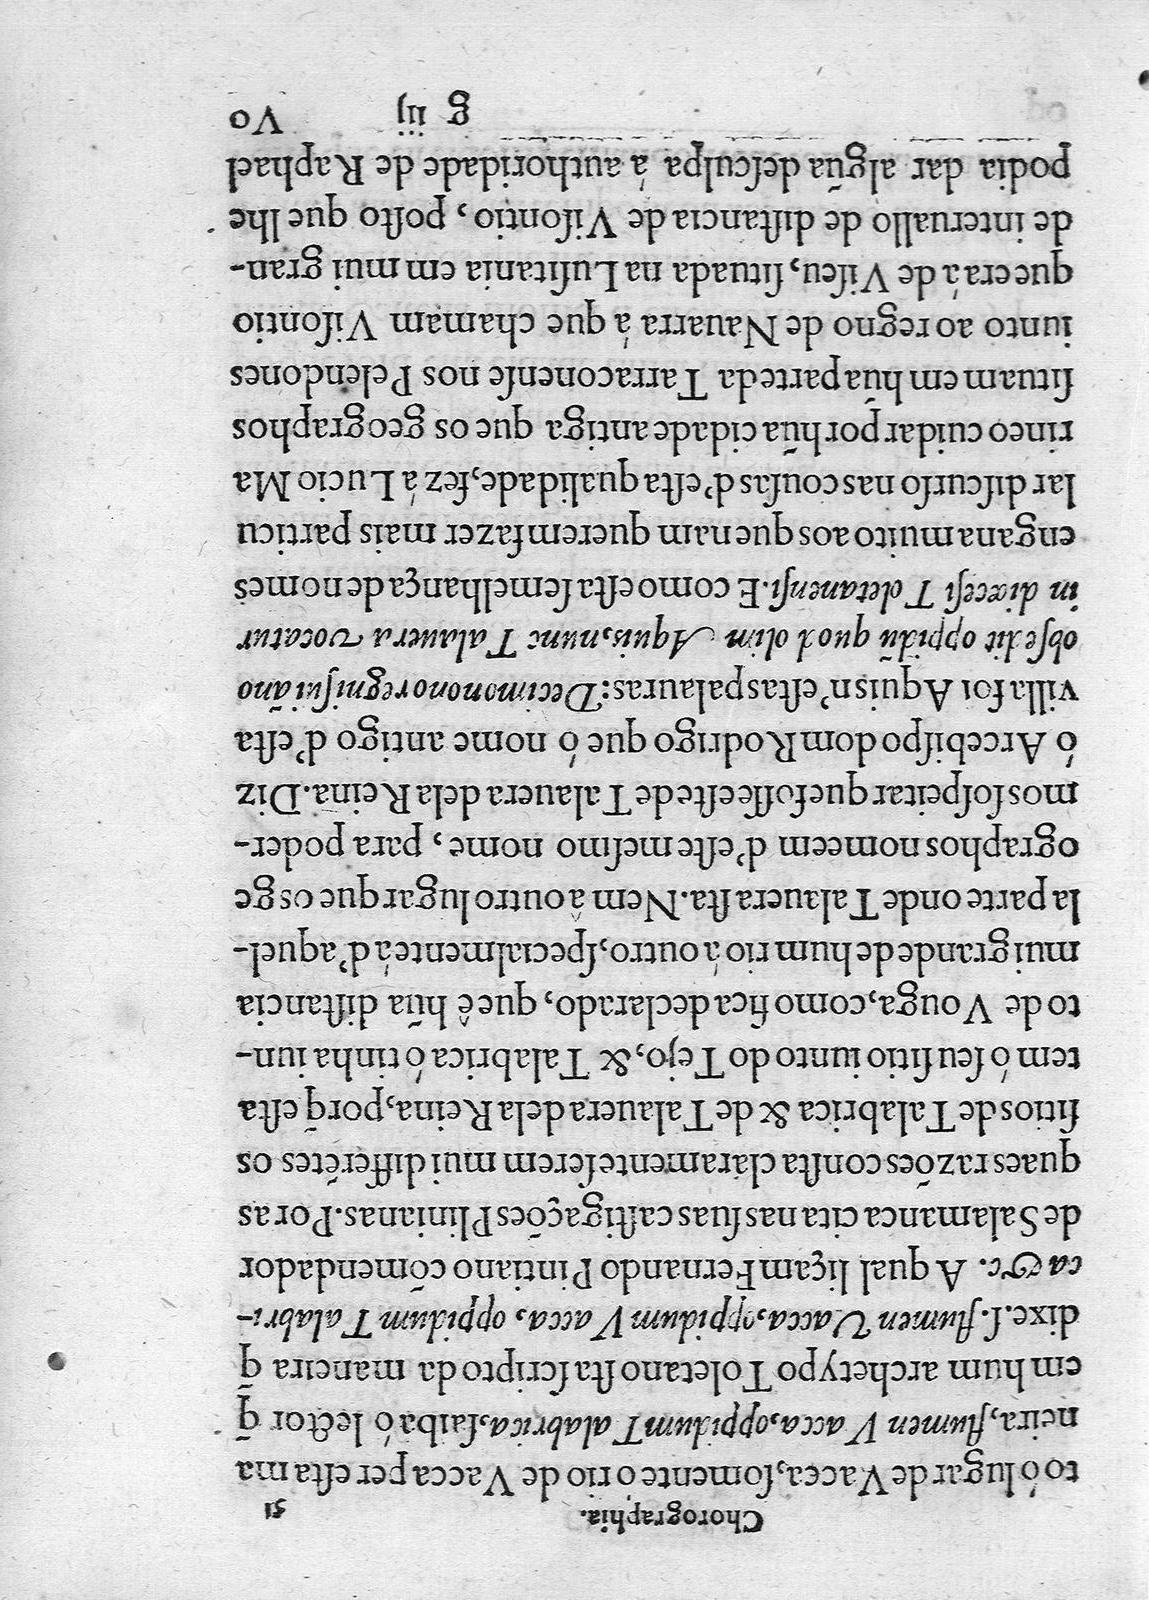 Chorographia. 51
to ó lugar de Vacca, ſomente o rio de Vacca per eſta ma
neira, flumen Vacca, oppidum Talabrica, ſaiba ó lector q̃
em hum archetypo Toletano ſta ſcripto da maneira q̃
dixe. ſ. flumen Vacca, oppidum Vacca, oppidum Talabri-
ca &c. A qual liçam Fernando Pintiano cõmendador
de Salamanca cita nas ſuas caſtigações Plinianas. Por as
quaes razões conſta claramente ſerem mui differẽtes os
ſitios de Talabrica & de Talauera dela Reina, porq̃ eſta
tem ó ſeu ſitio iunto do Tejo, & Talabrica ó tinha iun-
to de Vouga, como fica declarado, que ê hũa diſtancia
mui grande de hum rio á outro, ſpecialmente á d'aquel-
la parte onde Talauera ſta. Nem â outro lugar que os ge
ographos nomeem d'eſte meſmo nome, para poder-
mos ſoſpeitar que foſſe eſte de Talauera dela Reina. Diz
ó Arcebiſpo dom Rodrigo que ó nome antigo d'eſta
villa foi Aquis n'eſtas palauras: Decimonono regni ſui ãno
obſedit oppidũ quod olim Aquis, nunc Talauera vocatur
in diœceſi Toletanenſi. E como eſta ſemelhança de nomes
engana muito aos que nam querem fazer mais particu
lar diſcurſo nas couſas d'eſta qualidade, fez á Lucio Ma
rineo cuidar por hũa cidade antiga que os geographos
ſituam em hũa parte da Tarraconenſe nos Pelendones
iunto ao regno de Nauarra á que chamam Viſontio
que era á de Viſeu, ſituada na Luſitania em mui gran-
de interuallo de diſtancia de Viſontio, poſto que lhe
podia dar algũa deſculpa á authoridade de Raphael
g iij Vo